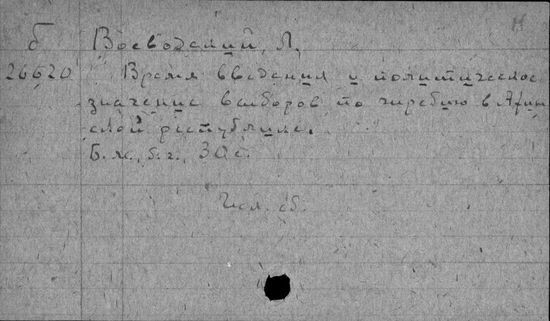 б Воеводский, Л.
26620 Время введения и политическое
значение выборов по жребию в Афин
ской республике.
Б. м., б. г., 30 с.